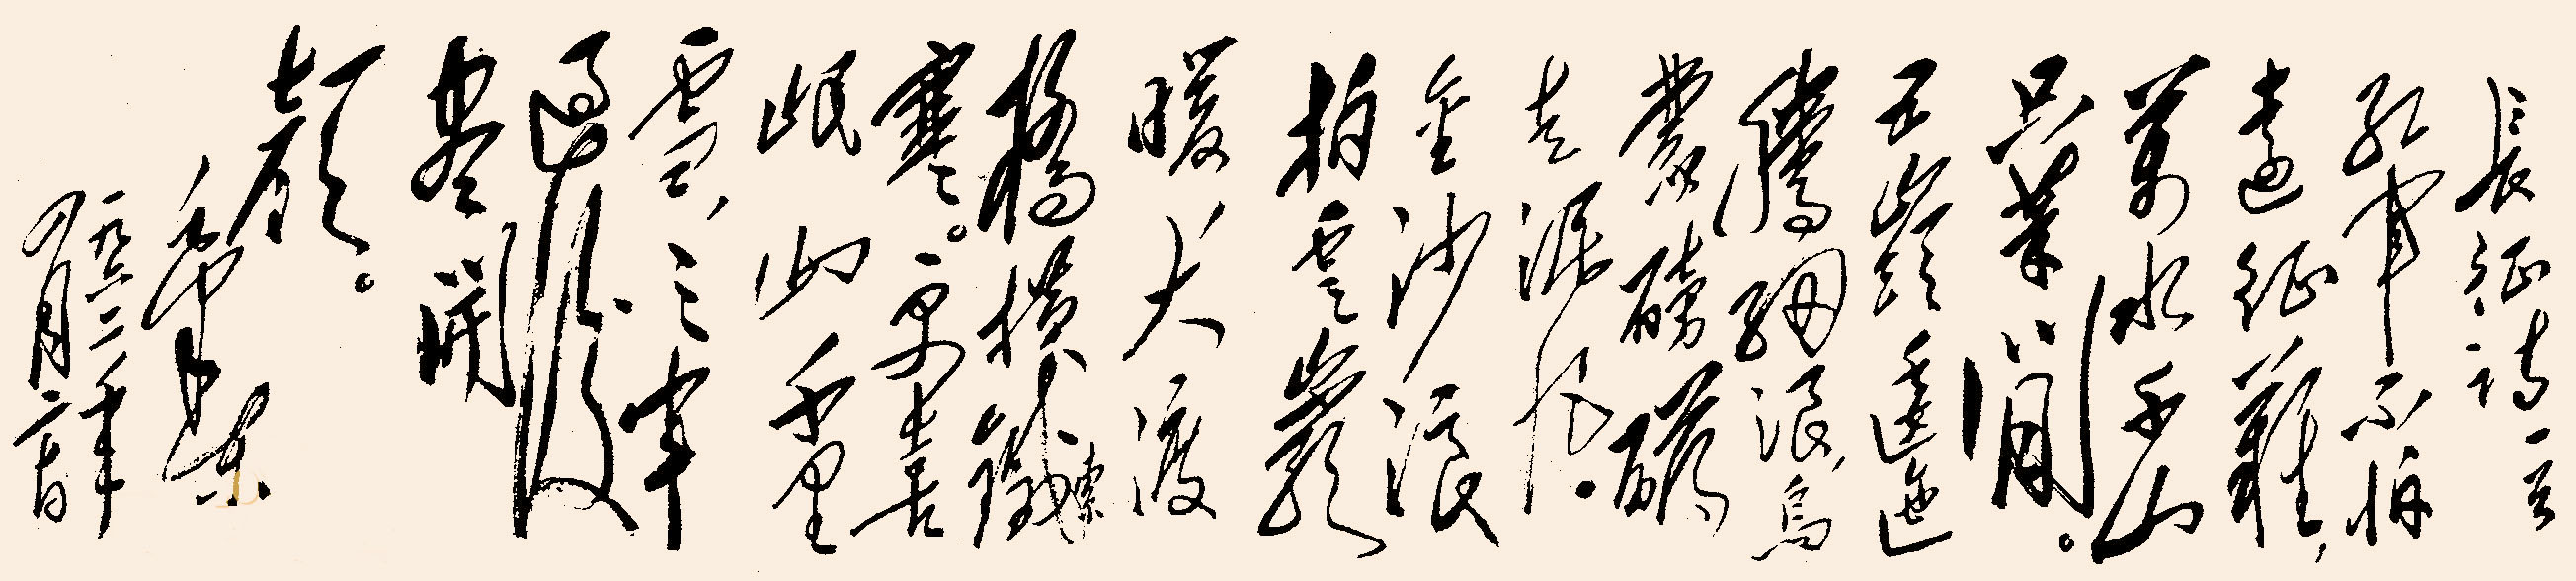 長征詩一首
紅軍不怕
遠征難，
萬水千山
只等閒。
五嶺逶迤
騰細浪，烏
蒙磅礴
走泥丸。
金沙浪
拍雲巖
暖大渡
橋橫鐵索
寒。更喜
岷山千里
雪，三軍
過後
盡開
顏。
毛澤東
一九六二年
四月二十日